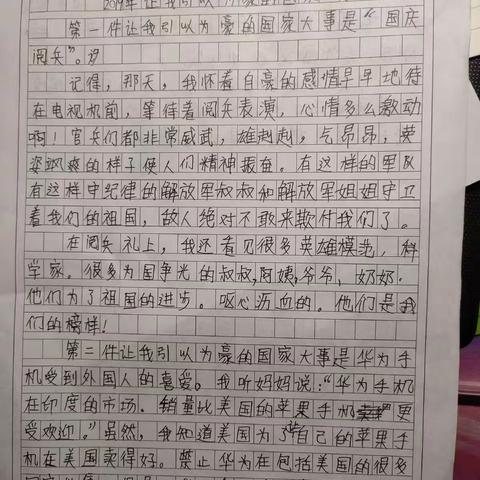 2019年让我引以为豪的国家
第一件让我引以为豪的国家大事是“国庆
阅兵”。
记得，那天，我怀着自豪的感情早早地待
在电视机前，等待着阅兵表演，心情多么激动
啊！官兵们都非常威武，雄赳赳，气昂昂，英
姿飒爽的样子使人们精神振奋。有这样的军队
有这样守纪律的解放军叔叔和解放军姐姐守卫
着我们的祖国，敌人绝对不敢来欺付我们了。
在阅兵礼上，我还看见很多英雄模范，科
学家。很多为国争光的叔叔,阿姨,爷爷、奶奶.
他们为了祖国的进步。呕心沥血的。他们是我
们的榜样！
第二件让我引以为豪的国家大事是华为手
机受到外国人的喜爱。我听妈妈说：“华为手机
在印度的市场．销量比美国的苹果手机更
受欢迎。”虽然，我知道美国为了让自己的苹果手
机在美国卖得好。禁止华为在包括美国的很多